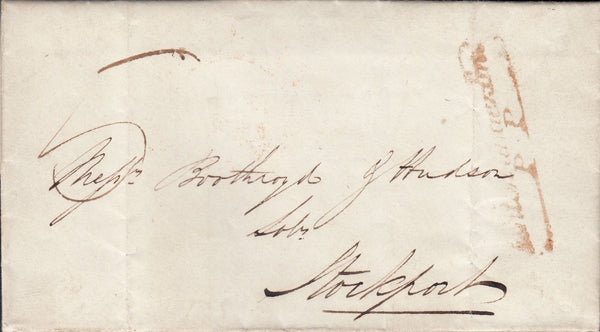 Messrs. Boothroyd & Hudson
Solrs
Stockport
P. P.